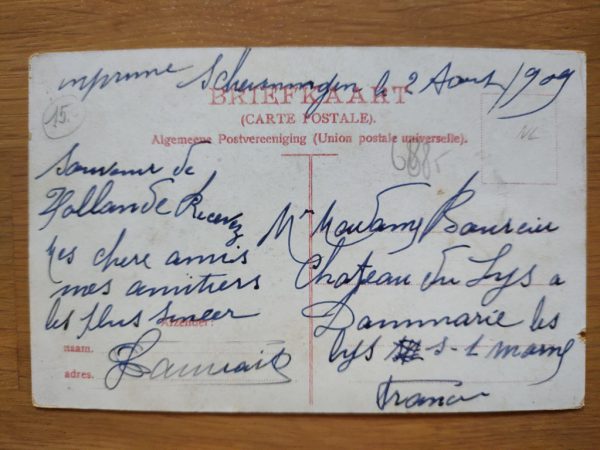 imprimé Scheveningen le 2 Aout 1909
BRIEFKAART
(CARTE POSTALE).
Algemeene Postvereeniging (Union postale universelle).
15.-
NL
688-
Souvenir de
Hollande Recevez
mes chere amis
mes amitiers
les plus sincer
Afzender:
naam.
adres.
Mr Madame Bourcier
Chateau du Lys a
Dammarie les
Lys S-t Marne
France